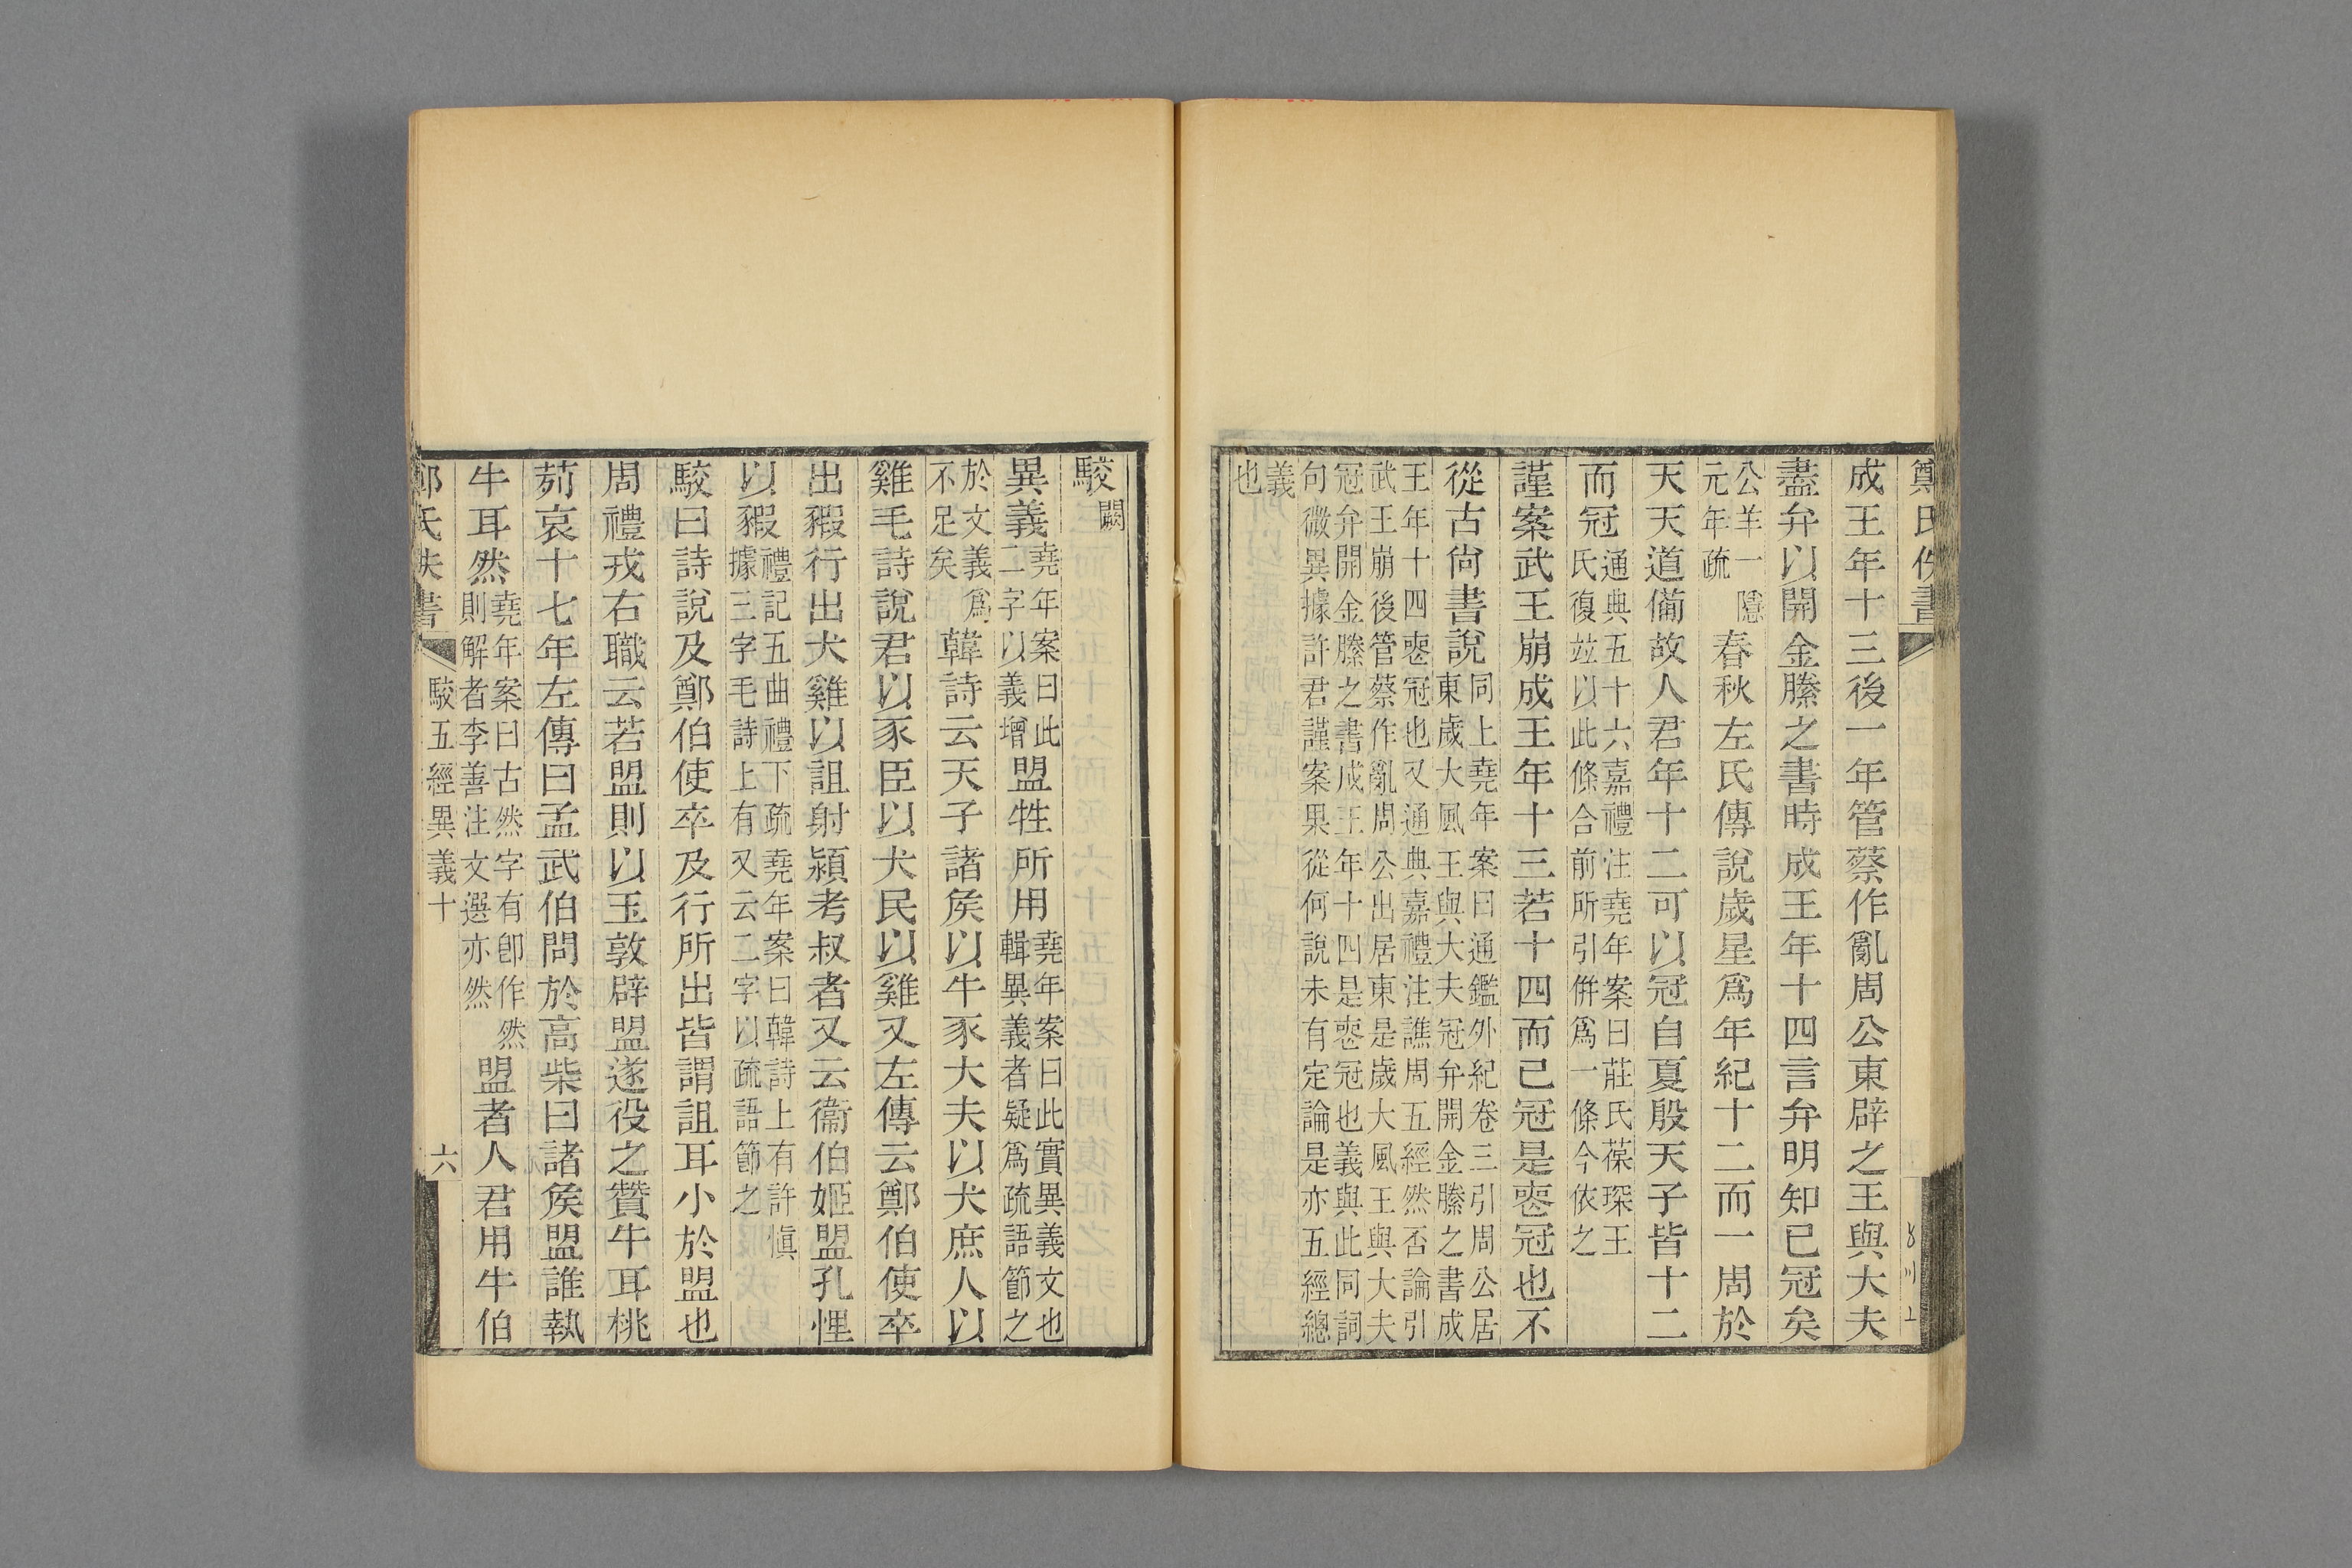 鄭氏佚書
成王年十三後一年管蔡作亂周公東辟之王與大夫
盡弁以開金縢之書時成王年十四言弁明知已冠矣
公羊一隱
元年疏
春秋左氏傳說歲星爲年紀十二而一周於
天天道備故人君年十二可以冠自夏殷天子皆十二
而冠
通典五十六嘉禮注堯年案曰莊氏葆琛王
氏復竝以此條合前所引併爲一條今依之
謹案武王崩成王年十三若十四而已冠是喪冠也不
從古尙書說
同上堯年案曰通鑑外紀卷三引周公居
東歲大風王與大夫冠弁開金縢之書成
王年十四喪冠也又通典嘉禮注譙周五經然否論引
武王崩後管蔡作亂周公出居東是歲大風王與大夫
冠弁開金縢之書成王年十四是喪冠也義與此同詞
句微異據許君謹案果從何說未有定論是亦五經總
義
也
駮
闕
異義
堯年案曰此
二字以義增
盟牲所用
堯年案曰此實異義文也
輯異義者疑爲疏語節之
於文義爲
不足矣
韓詩云天子諸矦以牛豕大夫以犬庶人以
雞毛詩說君以豕臣以犬民以雞又左傳云鄭伯使卒
出豭行出犬雞以詛射潁考叔者又云衞伯姬盟孔悝
以豭
禮記五曲禮下疏堯年案曰韓詩上有許愼
據三字毛詩上有又云二字以疏語節之
駮曰詩說及鄭伯使卒及行所出皆謂詛耳小於盟也
周禮戎右職云若盟則以玉敦辟盟遂役之贊牛耳桃
茢哀十七年左傳曰孟武伯問於高柴曰諸矦盟誰執
牛耳然
堯年案曰古然字有卽作然
則解者李善注文選亦然
盟者人君用牛伯
鄭氏佚書
駮五經異義十
六